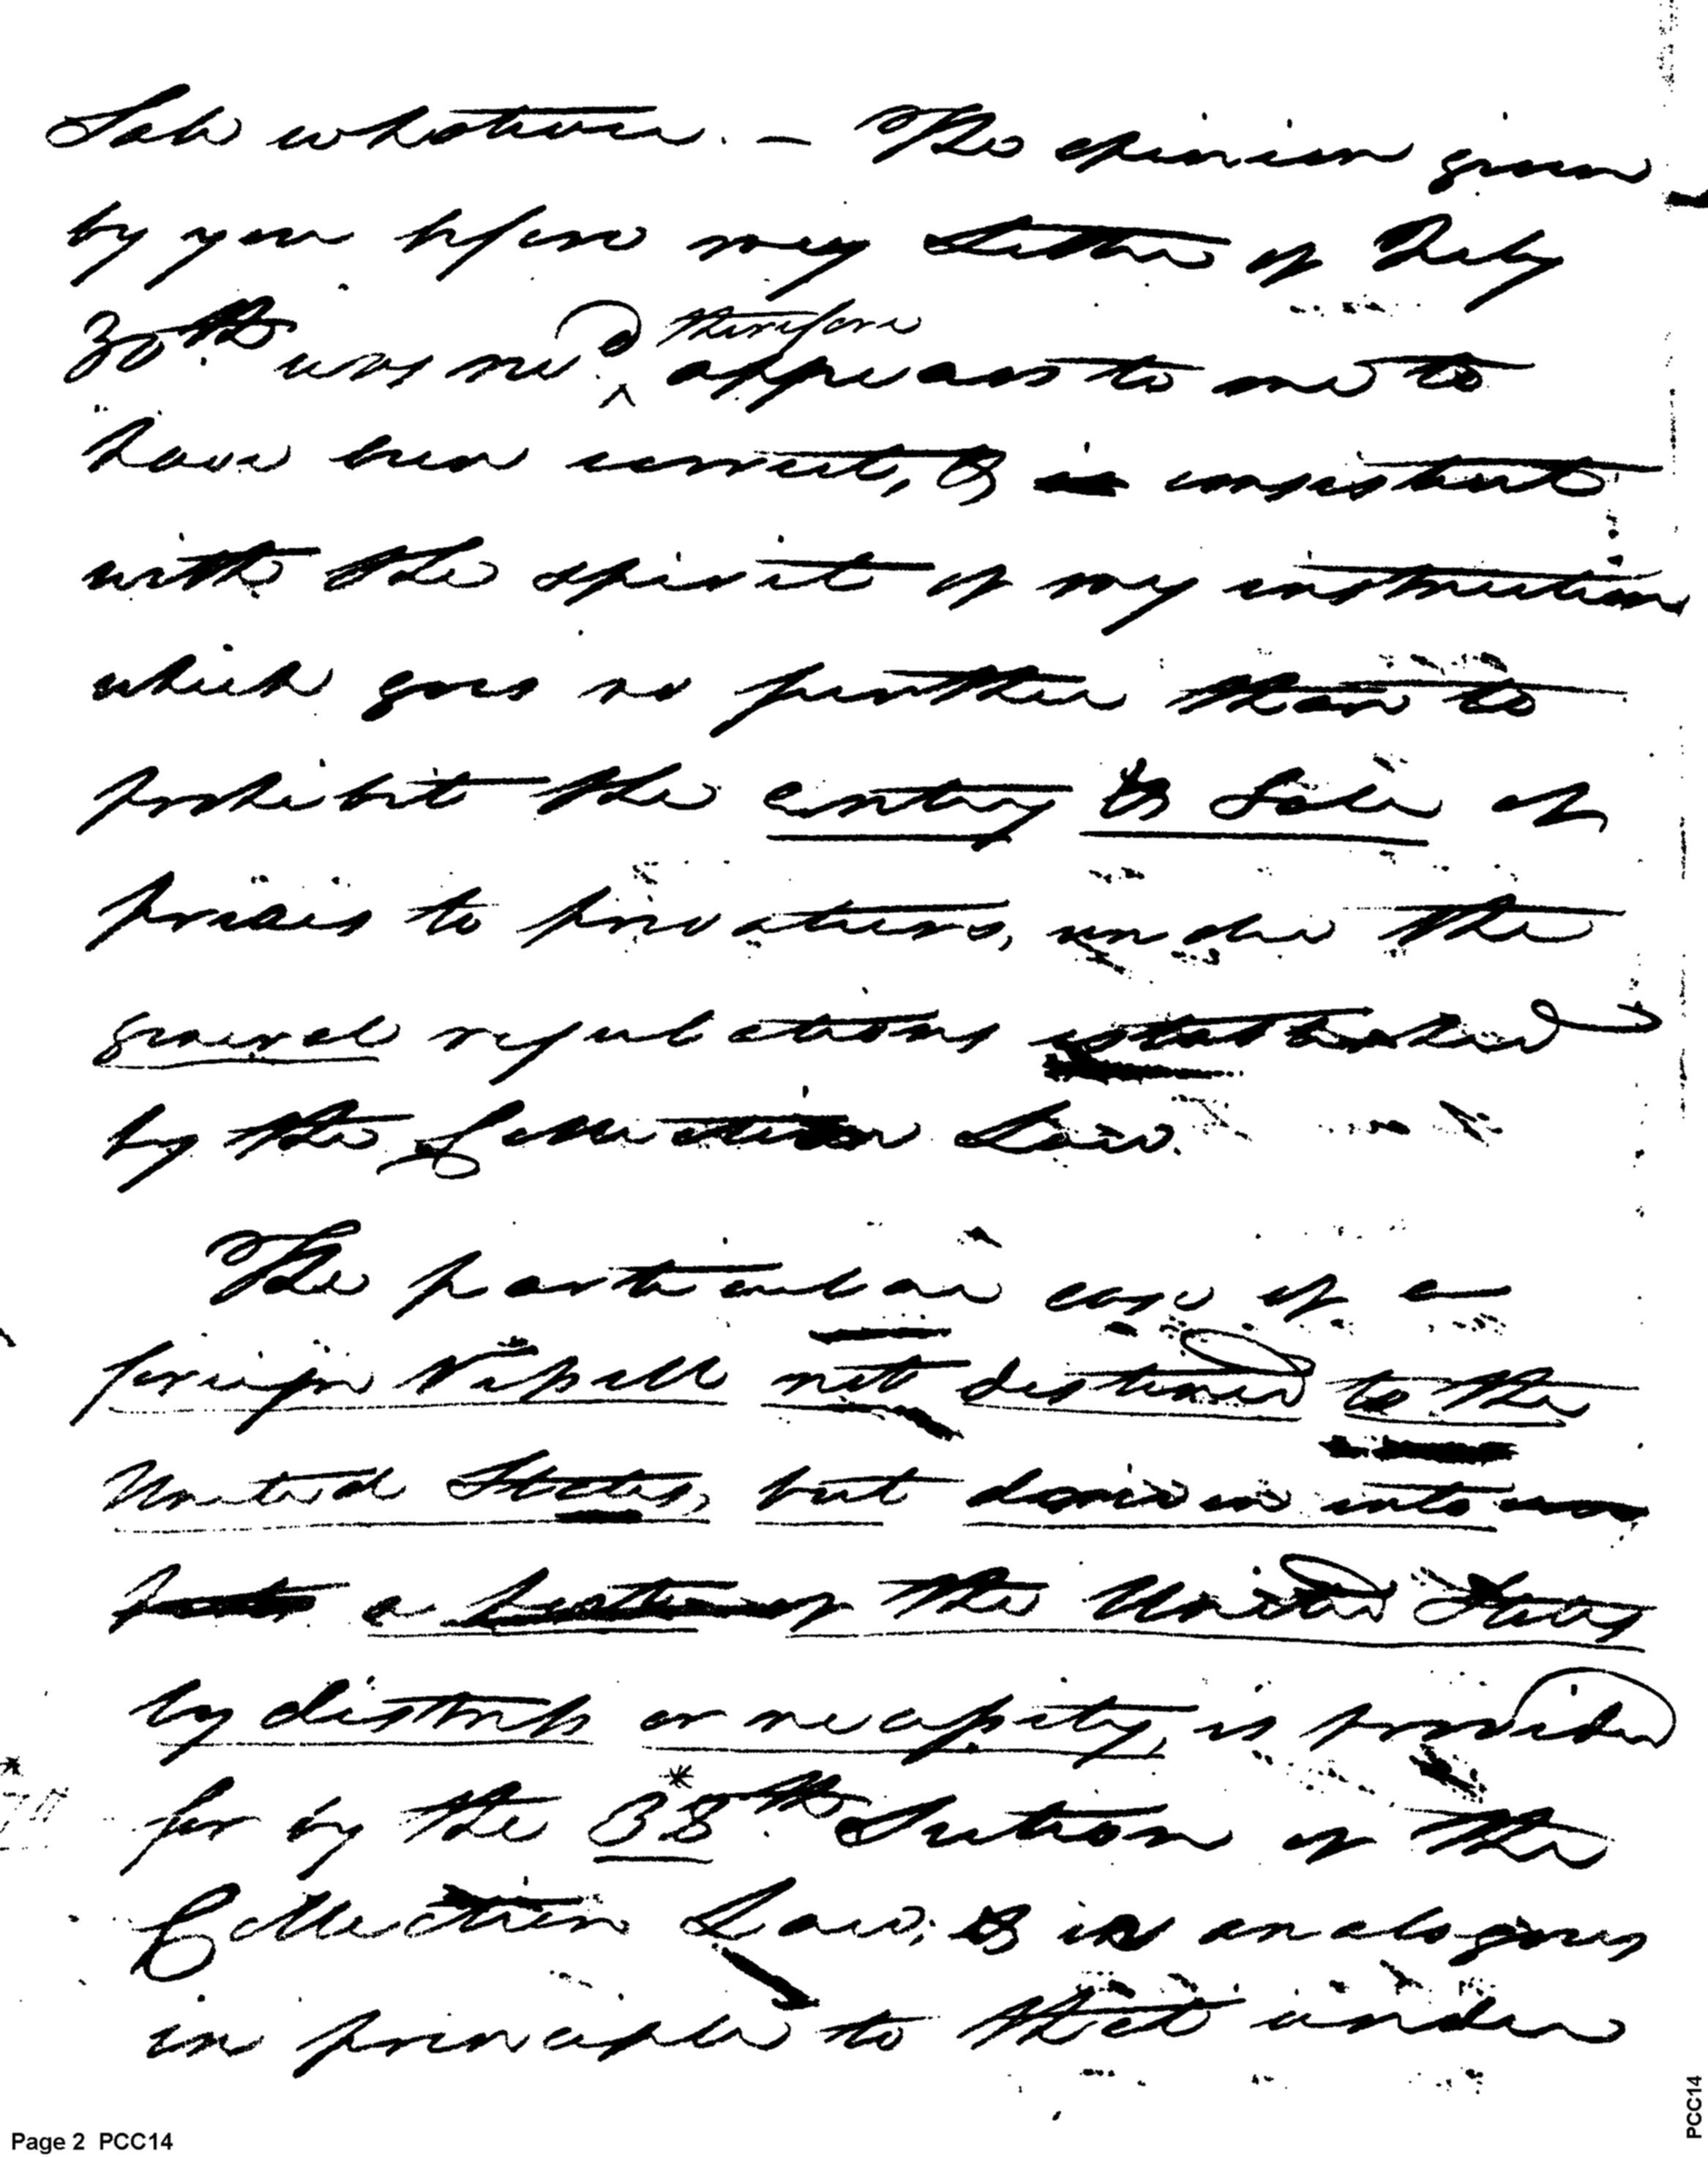 Sale whatever. — The opinion given
by you before my Letter of July
30th. was rec'd therefore appears to me to
have been correct, & is consistent
with the spirit of my instructions
which goes no further than to
prohibit the entry & Sale of
prizes to privateers, under the
general regulations established
by the Collection Law.
The particular case of a
foreign Vessell not destined to the
United States, but driven into
a of the United States
by distress or necessity, is provided
for by the *38th. Section of the
Collection Law; & is analogous
in principle to that under
Page 2 PCC14
PCC14